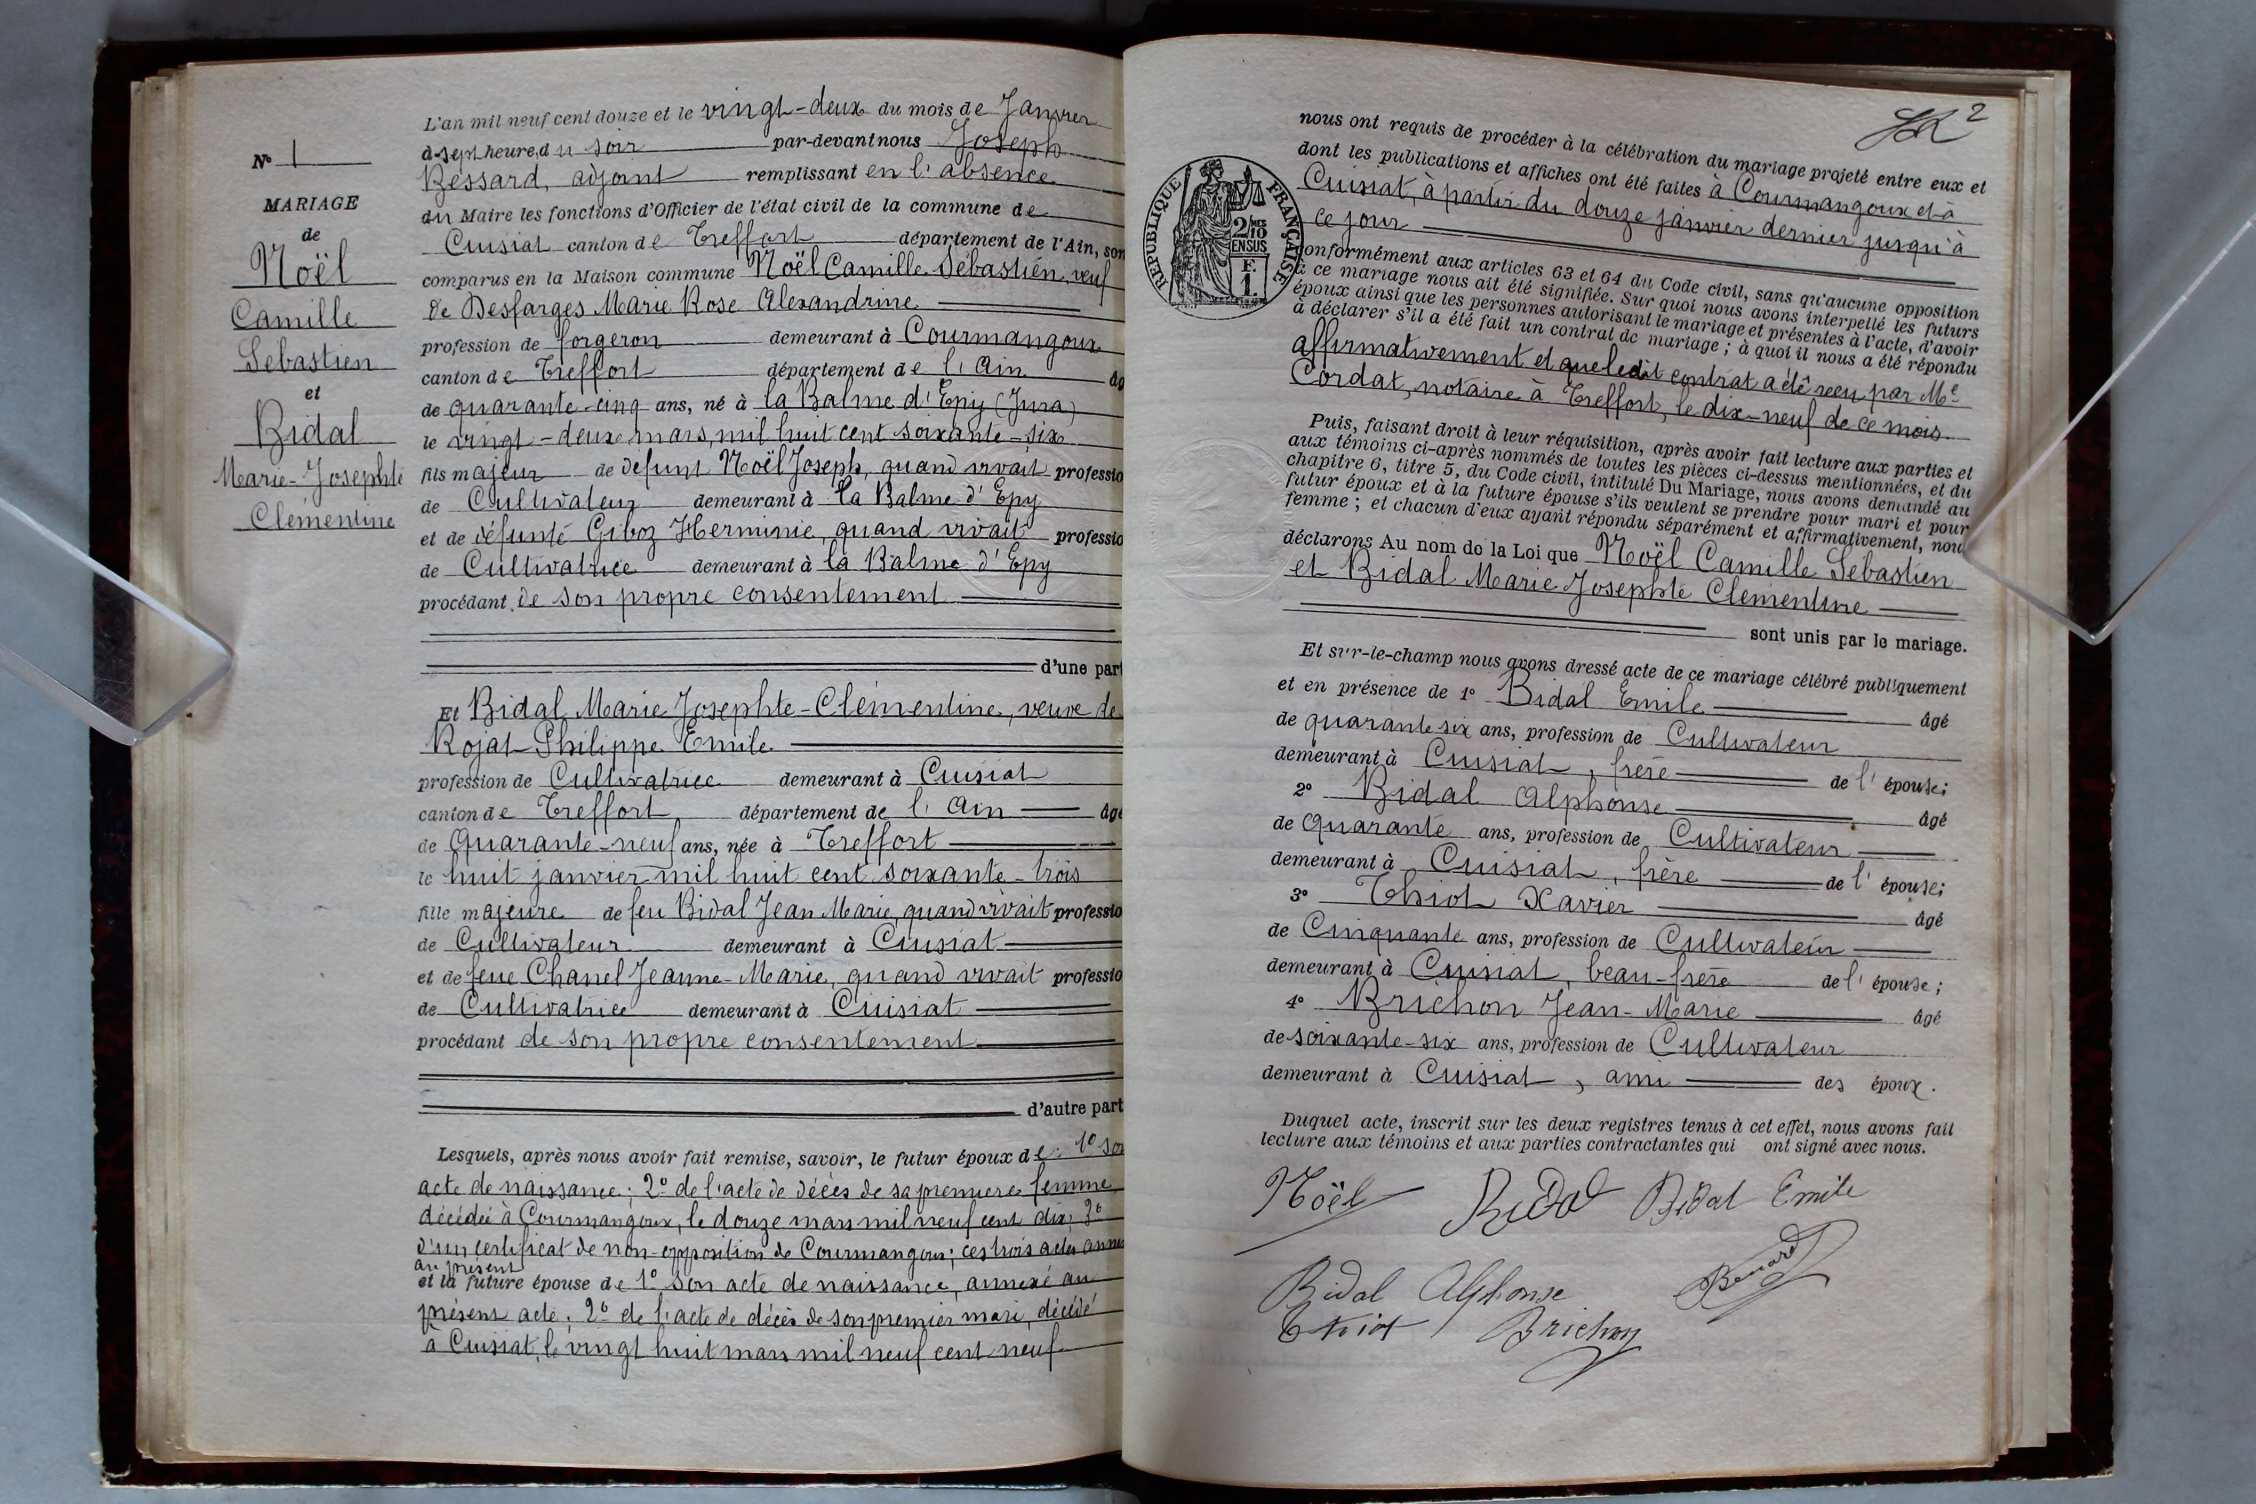 N° 1
MARIAGE
de
Noël
Camille
Sébastien
et
Bidal
Marie-Josephte
Clémentine
L'an mil neuf cent douze et le vingt-deux du mois de Janvier
à sept heure, du soir par-devant nous Joseph
Bessard, adjoint remplissant en l'absence
du Maire les fonctions d'Officier de l'état civil de la commune de
Cuisiat canton de Treffort département de l'Ain, son
comparus en la Maison commune Noël Camille Sébastien, veuf
de Desfarges Marie Rose Alexandrine
profession de forgeron demeurant à Courmangoux
canton de Treffort département de l'Ain âg
de quarante-cinq ans, né à la Balme d'Epy (Jura)
le vingt-deux mars, mil huit cent soixante-six
fils majeur de défunt Noël Joseph, quand vivait professio
de Cultivateur demeurant à la Balme d'Epy
et de défunte Giboz Herminie, quand vivait professio
de Cultivatrice demeurant à la Balme d'Epy
procédant de son propre consentement
d'une part
Et Bidal Marie Josephte-Clémentine, veuve de
Rojat Philippe Emile
profession de Cultivatrice demeurant à Cuisiat
canton de Treffort département de l'Ain âgé
de Quarante-neuf ans, née à Treffort
le huit janvier mil huit cent soixante-trois
fille majeure de feu Bidal Jean Marie, quand vivait professio
de Cultivateur demeurant à Cuisiat
et de feue Chanel Jeanne-Marie, quand vivait professio
de Cultivatrice demeurant à Cuisiat
procédant de son propre consentement
d'autre part
Lesquels, après nous avoir fait remise, savoir, le futur époux de: 1° son
acte de naissance; 2° de l'acte de décès de sa première femme
décédée à Courmangoux, le douze mars mil neuf cent dix; 3°
d'un certificat de non-opposition de Courmangoux; ces trois actes annex
au présent
et la future épouse de 1° son acte de naissance, annexé au
présent acte; 2° de l'acte de décès de son premier mari, décédé
à Cuisiat, le vingt huit mars mil neuf cent neuf
2
nous ont requis de procéder à la célébration du mariage projeté entre eux et
dont les publications et affiches ont été faites à Courmangoux et à
Cuisiat, à partir du douze janvier dernier jusqu'à
ce jour
RÉPUBLIQUE FRANÇAISE
2/10
EN SUS
F.
1.
conformément aux articles 63 et 64 du Code civil, sans qu'aucune opposition
à ce mariage nous ait été signifiée. Sur quoi nous avons interpellé les futurs
époux ainsi que les personnes autorisant le mariage et présentes à l'acte, d'avoir
à déclarer s'il a été fait un contrat de mariage; à quoi il nous a été répondu
affirmativement et que ledit contrat a été reçu par Me
Cordat, notaire à Treffort, le dix-neuf de ce mois.
Puis, faisant droit à leur réquisition, après avoir fait lecture aux parties et
aux témoins ci-après nommés de toutes les pièces ci-dessus mentionnées, et du
chapitre 6, titre 5, du Code civil, intitulé Du Mariage, nous avons demandé au
futur époux et à la future épouse s'ils veulent se prendre pour mari et pour
femme; et chacun d'eux ayant répondu séparément et affirmativement, nou
déclarons Au nom de la Loi que Noël Camille Sébastien
et Bidal Marie Josephte Clémentine
sont unis par le mariage.
Et sur-le-champ nous avons dressé acte de ce mariage célébré publiquement
et en présence de 1° Bidal Emile âgé
de quarante six ans, profession de Cultivateur
demeurant à Cuisiat, frère de l'épouse;
2° Bidal Alphonse âgé
de Quarante ans, profession de Cultivateur
demeurant à Cuisiat, frère de l'épouse;
3° Thiot Xavier âgé
de Cinquante ans, profession de Cultivateur
demeurant à Cuisiat, beau-frère de l'épouse;
4° Brichon Jean-Marie âgé
de soixante-six ans, profession de Cultivateur
demeurant à Cuisiat, ami des époux.
Duquel acte, inscrit sur les deux registres tenus à cet effet, nous avons fait
lecture aux témoins et aux parties contractantes qui ont signé avec nous.
Noël Bidal Bidal Emile
Bidal Alphonse Bessard
Thiot Brichon